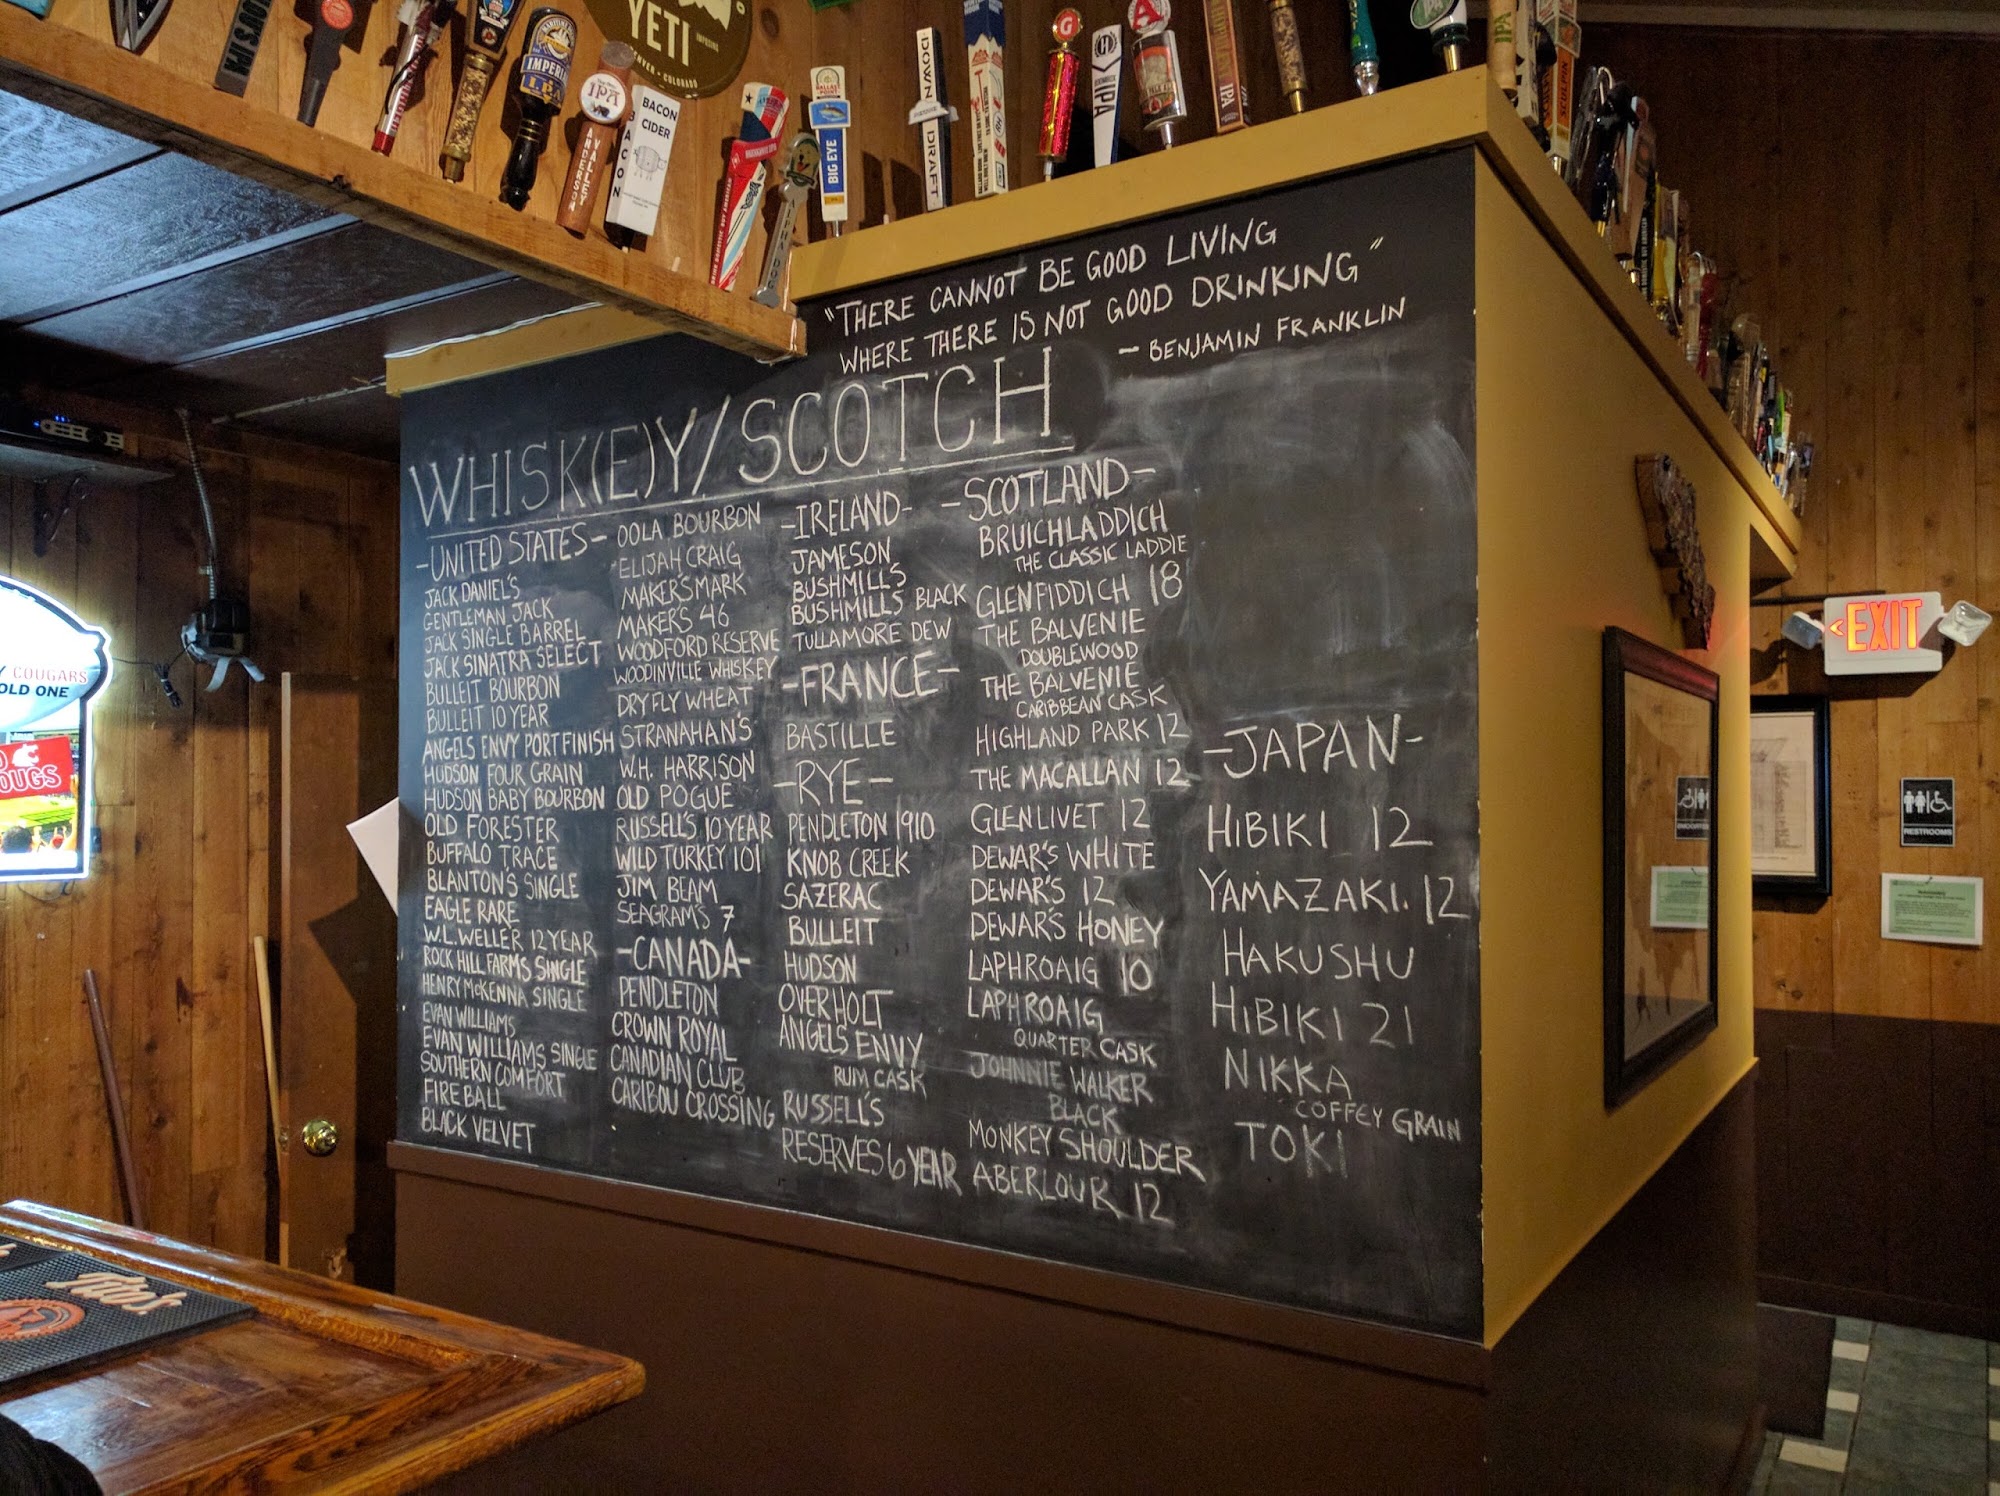 YETI
IMPERIAL
IPA
BACON
CIDER
BACON
IPA
ANDERSON
VALLEY
BIG EYE
ALPHA DOG
DOWN
DRAFT
G
A
IPA
IPA
IPA
SCULPIN
"THERE CANNOT BE GOOD LIVING
WHERE THERE IS NOT GOOD DRINKING"
- BENJAMIN FRANKLIN
WHISK(E)Y/SCOTCH
-UNITED STATES-
JACK DANIEL'S
GENTLEMAN JACK
JACK SINGLE BARREL
JACK SINATRA SELECT
BULLEIT BOURBON
BULLEIT 10 YEAR
ANGELS ENVY PORT FINISH
HUDSON FOUR GRAIN
HUDSON BABY BOURBON
OLD FORESTER
BUFFALO TRACE
BLANTON'S SINGLE
EAGLE RARE
W.L. WELLER 12 YEAR
ROCK HILL FARMS SINGLE
HENRY McKENNA SINGLE
EVAN WILLIAMS
EVAN WILLIAMS SINGLE
SOUTHERN COMFORT
FIRE BALL
BLACK VELVET
OOLA BOURBON
ELIJAH CRAIG
MAKER'S MARK
MAKER'S 46
WOODFORD RESERVE
WOODINVILLE WHISKEY
DRY FLY WHEAT
STRANAHAN'S
W.H. HARRISON
OLD POGUE
RUSSELL'S 10 YEAR
WILD TURKEY 101
JIM BEAM
SEAGRAM'S 7
-CANADA-
PENDLETON
CROWN ROYAL
CANADIAN CLUB
CARIBOU CROSSING
-IRELAND-
JAMESON
BUSHMILLS
BUSHMILLS BLACK
TULLAMORE DEW
-FRANCE-
BASTILLE
-RYE-
PENDLETON 1910
KNOB CREEK
SAZERAC
BULLEIT
HUDSON
OVERHOLT
ANGELS ENVY
RUM CASK
RUSSELL'S
RESERVES 6 YEAR
-SCOTLAND-
BRUICHLADDICH
THE CLASSIC LADDIE
GLENFIDDICH 18
THE BALVENIE
DOUBLEWOOD
THE BALVENIE
CARIBBEAN CASK
HIGHLAND PARK 12
THE MACALLAN 12
GLENLIVET 12
DEWAR'S WHITE
DEWAR'S 12
DEWAR'S HONEY
LAPHROAIG 10
LAPHROAIG
QUARTER CASK
JOHNNIE WALKER
BLACK
MONKEY SHOULDER
ABERLOUR 12
-JAPAN-
HIBIKI 12
YAMAZAKI. 12
HAKUSHU
HIBIKI 21
NIKKA
COFFEY GRAIN
TOKI
EXIT
RESTROOMS
COUGARS
OLD ONE
Tito's